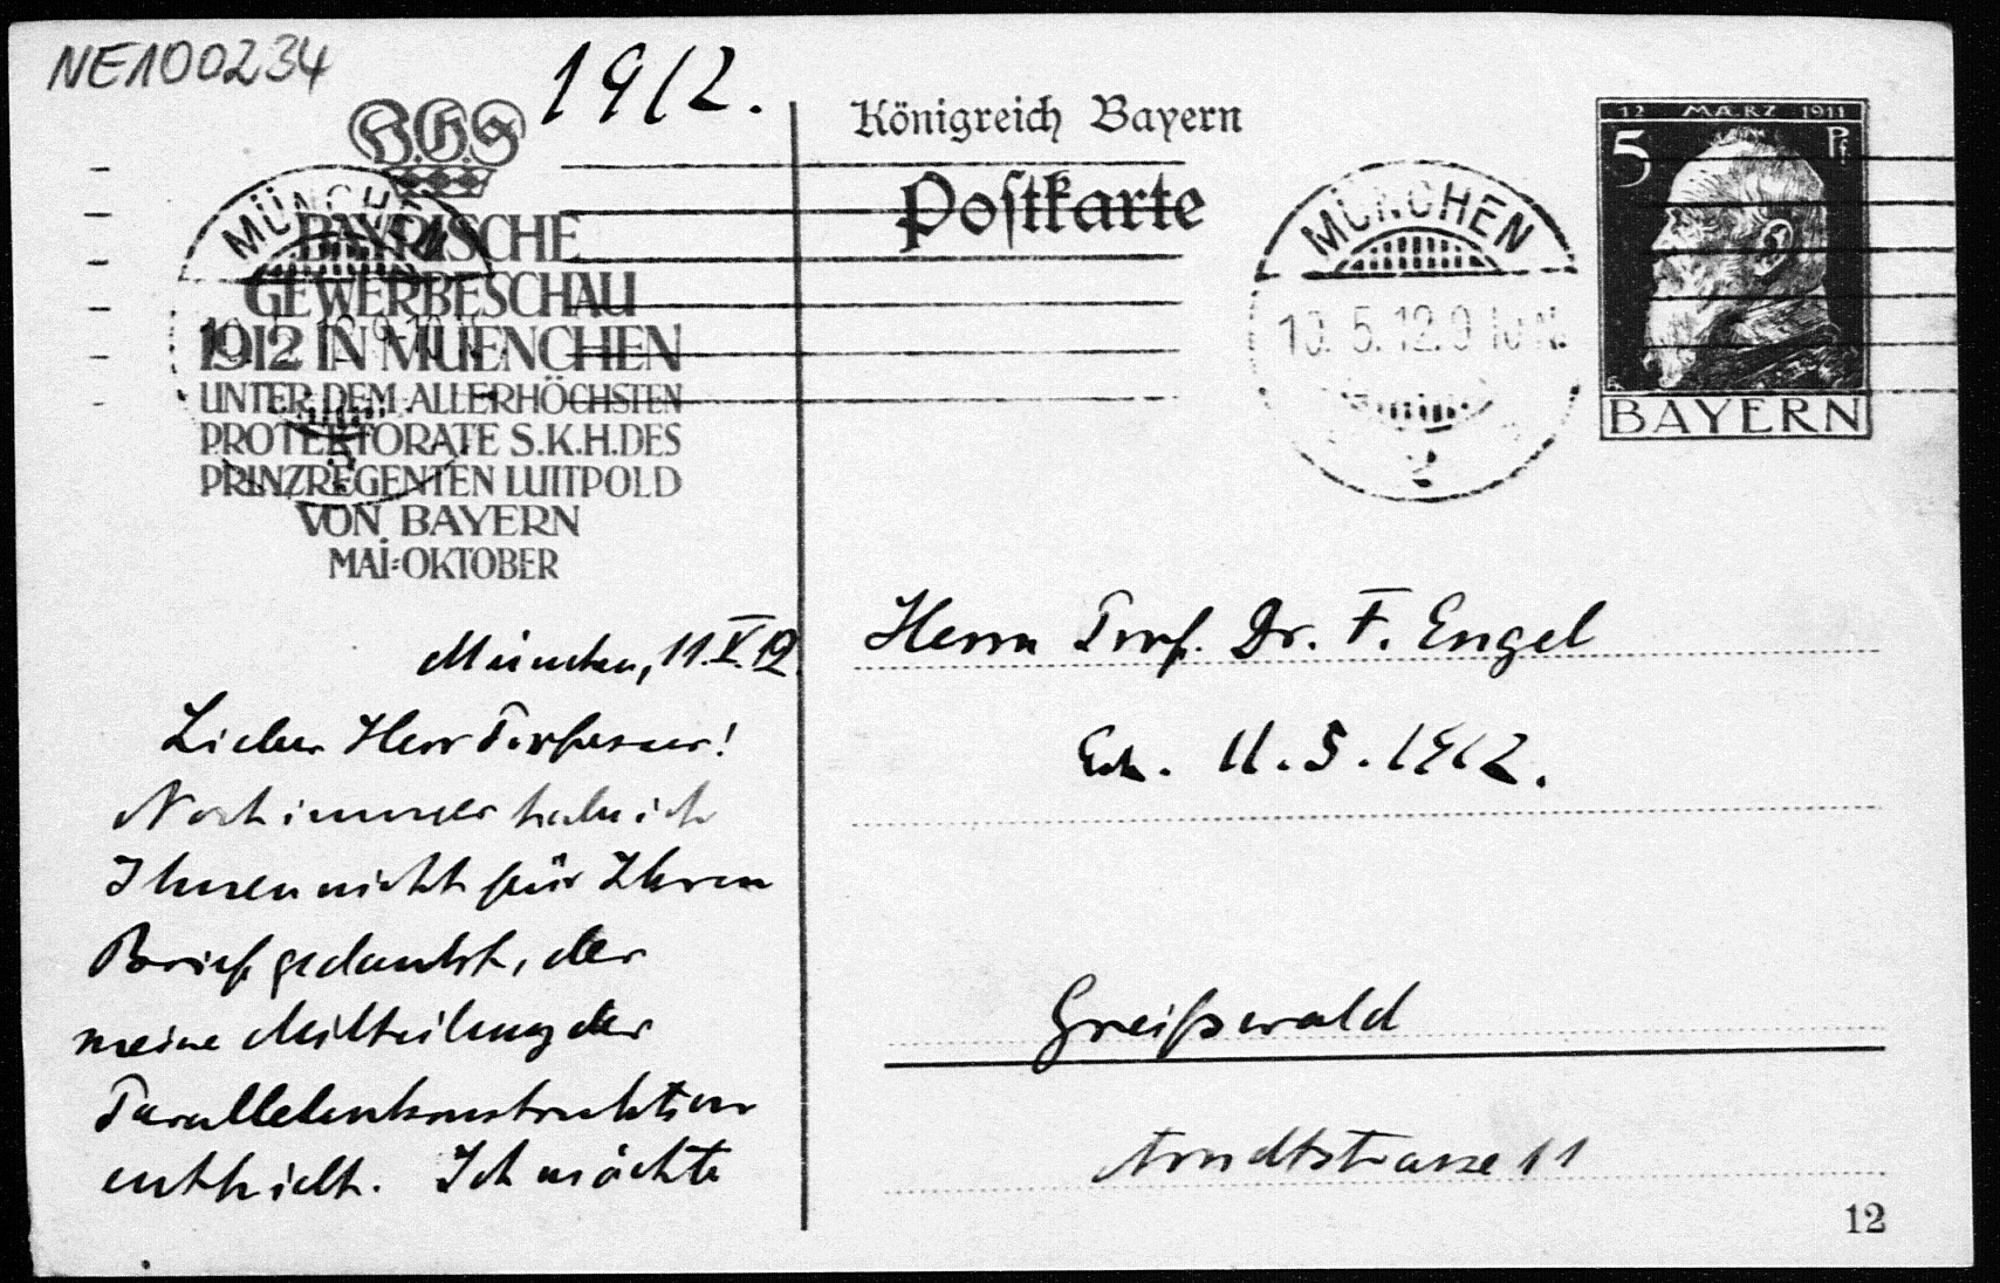 NE100234
1912.
BAYRISCHE
GEWERBESCHAU
1912 IN MUENCHEN
UNTER DEM ALLERHÖCHSTEN
PROTEKTORATE S.K.H. DES
PRINZREGENTEN LUITPOLD
VON BAYERN
MAI-OKTOBER
MÜNCHEN
München, 11.V.12.
Lieber Herr Professor!
Noch immer habe ich
Ihnen nicht für Ihren
Brief gedankt, der
meine Mitteilung der
Parallelenkonstruktion
enthielt. Ich möchte
Königreich Bayern
Postkarte
MÜNCHEN
10.5.12.9 10 N.
12 MÆRZ 1911
5 Pf
BAYERN
Herrn Prof. Dr. F. Engel
11.5.1912.
Greifswald
Arndtstrasse 11
12